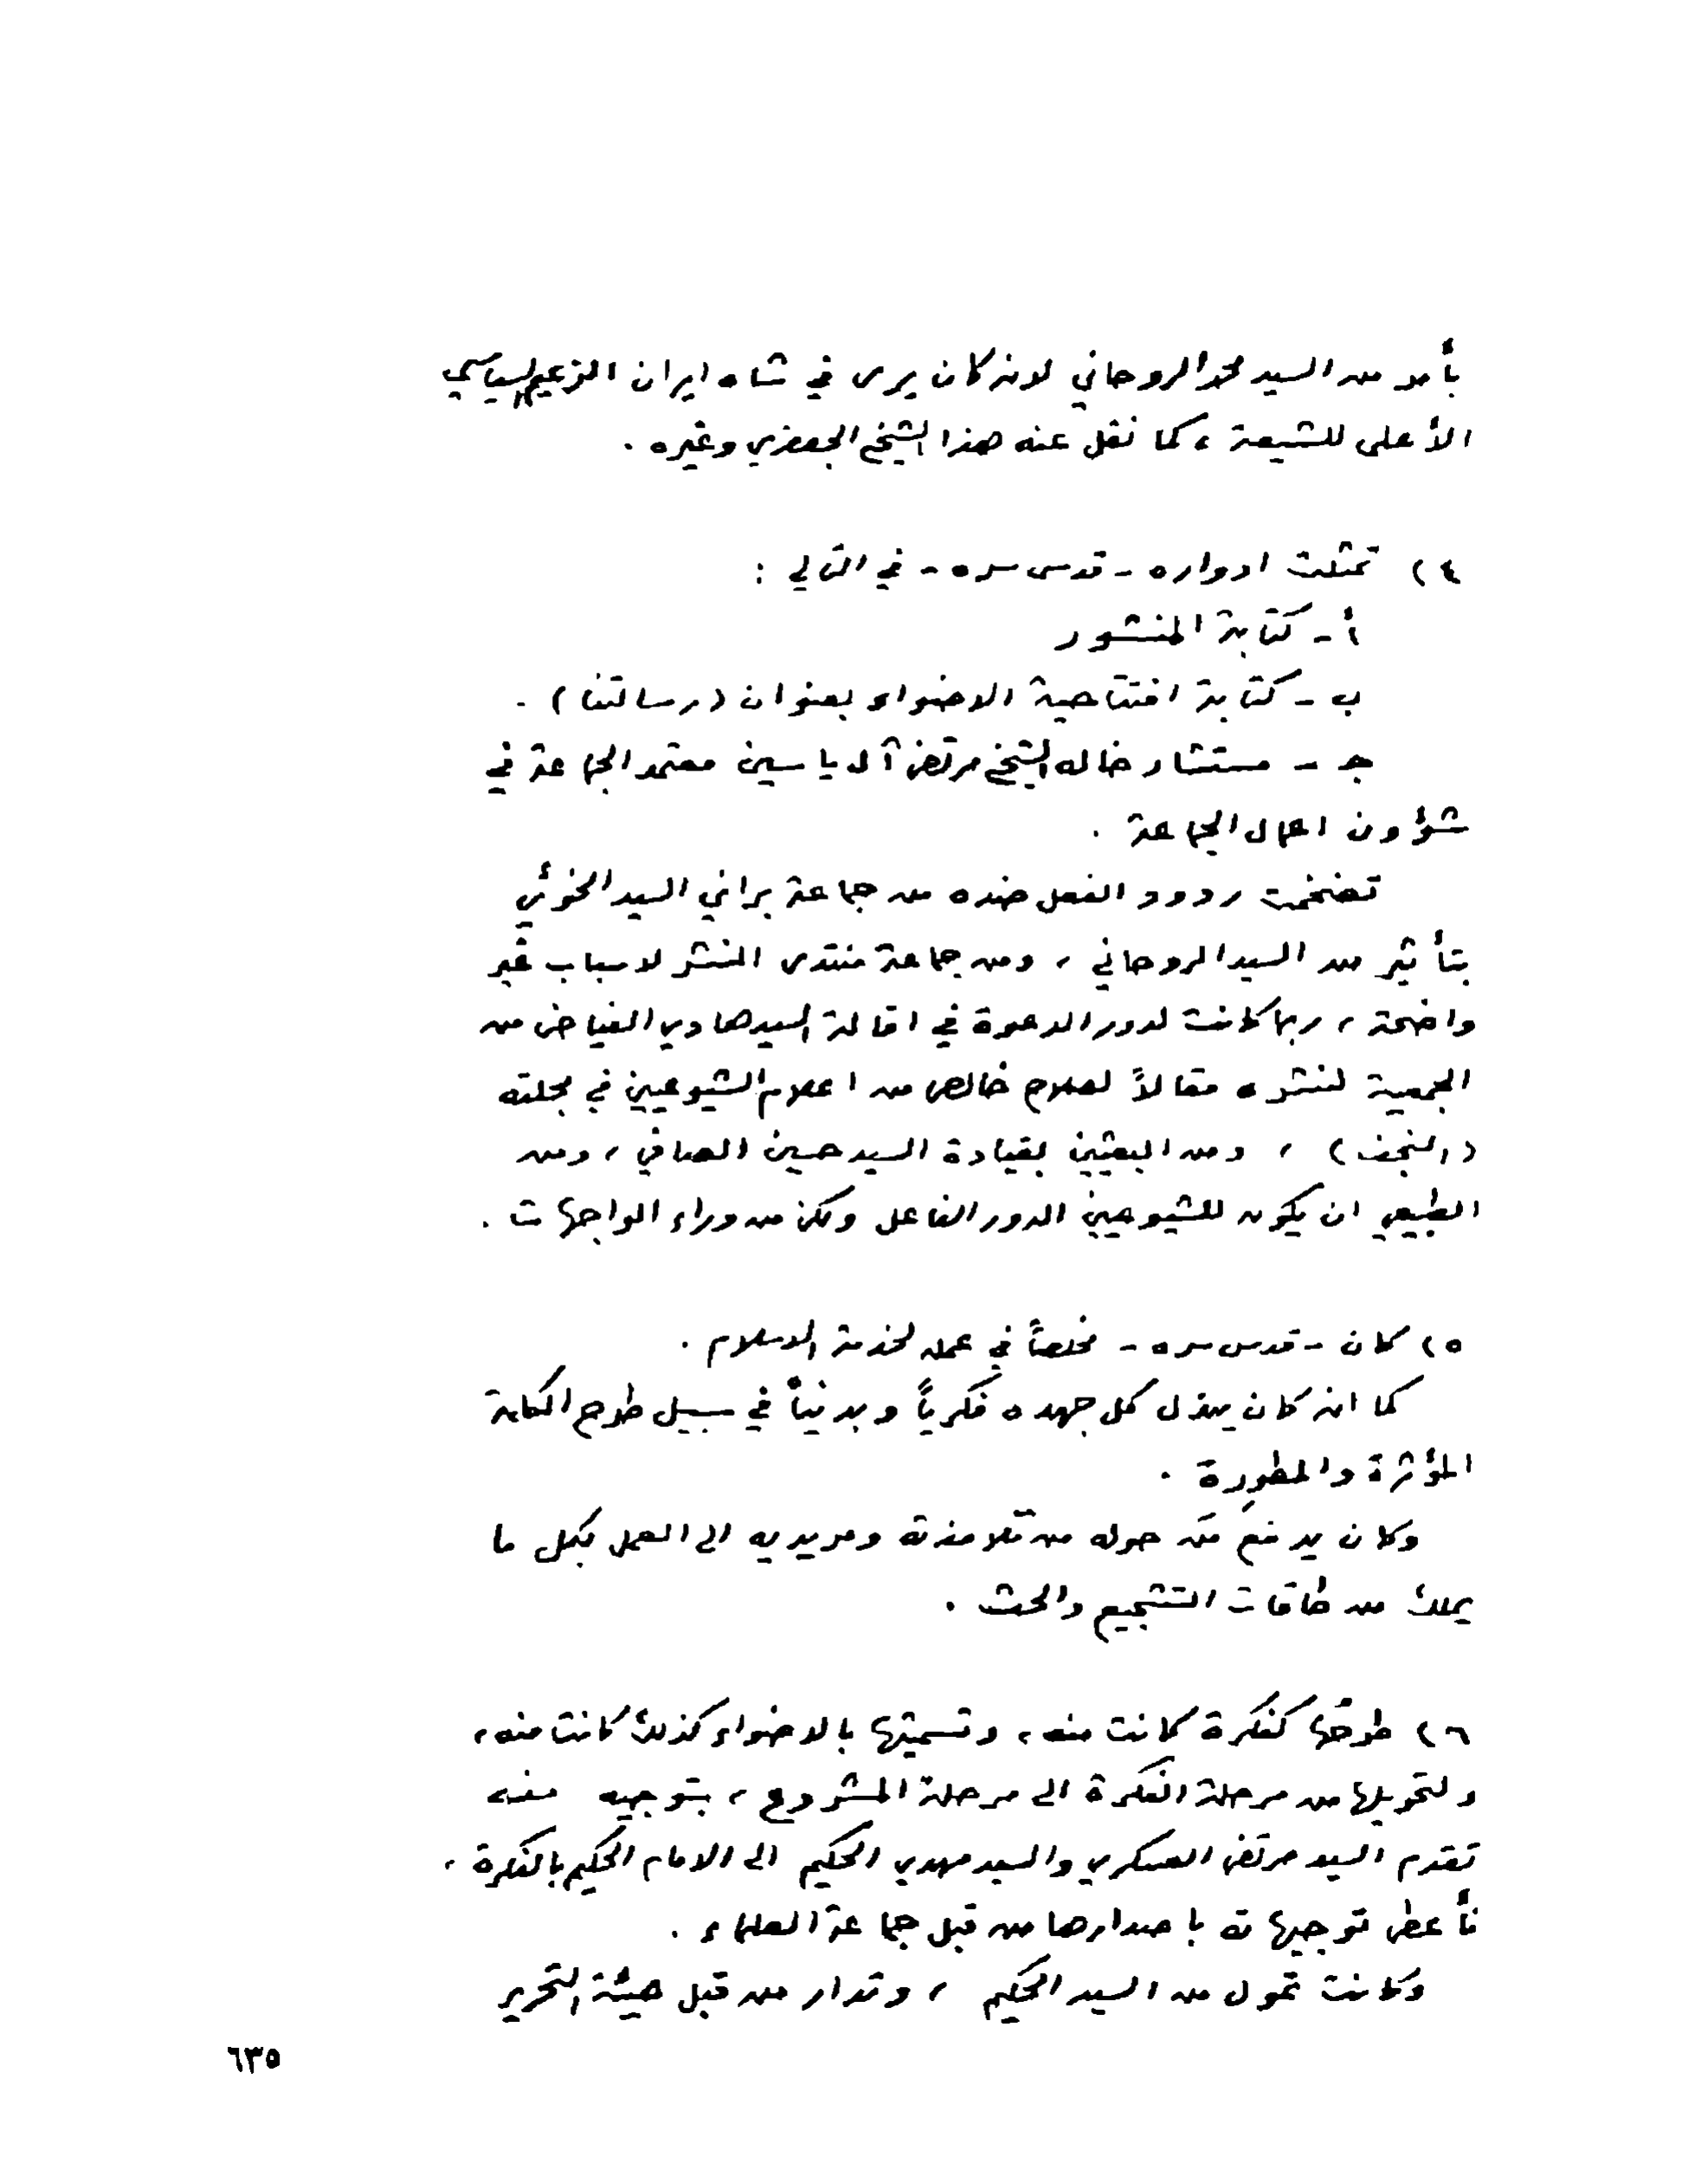 بأمر من السيد محمد الروحاني لانه كان يرى في شاه ايران الزعيم السياسي
الأعلى للشيعة ، كما نقل عنه هذا الشيخ الجعفري وغيره .
٤) تمثلت ادواره - قدس سره - في التالي :
أ - كتابة المنشور
ب - كتابة افتتاحية الاضواء بعنوان (رسالتنا) .
جـ - مستشار خاله الشيخ مرتضى آل ياسين معتمد الجماعة في
شؤون اعمال الجماعة .
تضخمت ردود الفعل ضده من جماعة براني السيد الخوئي
بتأثير من السيد الروحاني ، ومن جماعة منتدى النشر لاسباب غير
واضحة ، ربما كانت لدور الدعوة في اقالة السيد هادي الفياض من
الجمعية لنشره مقالاً لعلام خالص من اعلام الشيوعيين في مجلته
(النجف) ، ومن البعثيين بقيادة السيد حسين الصافي ، ومن
الطبيعي ان يكون للشيوعيين الدور الفاعل ولكن من وراء الواجهات .
٥) كان - قدس سره - مخلصاً في عمله لخدمة الاسلام .
كما انه كان يبذل كل جهده فكرياً وبدنياً في سبيل طرح الكتابة
المؤثرة والمطورة .
وكان يدفع مَن حوله من تلامذته ومريديه الى العمل بكل ما
يملك من طاقات التشجيع والحث .
٦) طرحُها كفكرة كانت منه ، وتسميتها بالاضواء كذلك كانت منه ،
ولتحويلها من مرحلة الفكرة الى مرحلة المشروع ، بتوجيه منه
تقدم السيد مرتضى العسكري والسيد مهدي الحكيم الى الامام الحكيم بالفكرة .
فأعطى توجيهاته باصدارها من قبل جماعة العلماء .
وكانت تمول من السيد الحكيم ، وتدار من قبل هيئة التحرير
٦٣٥